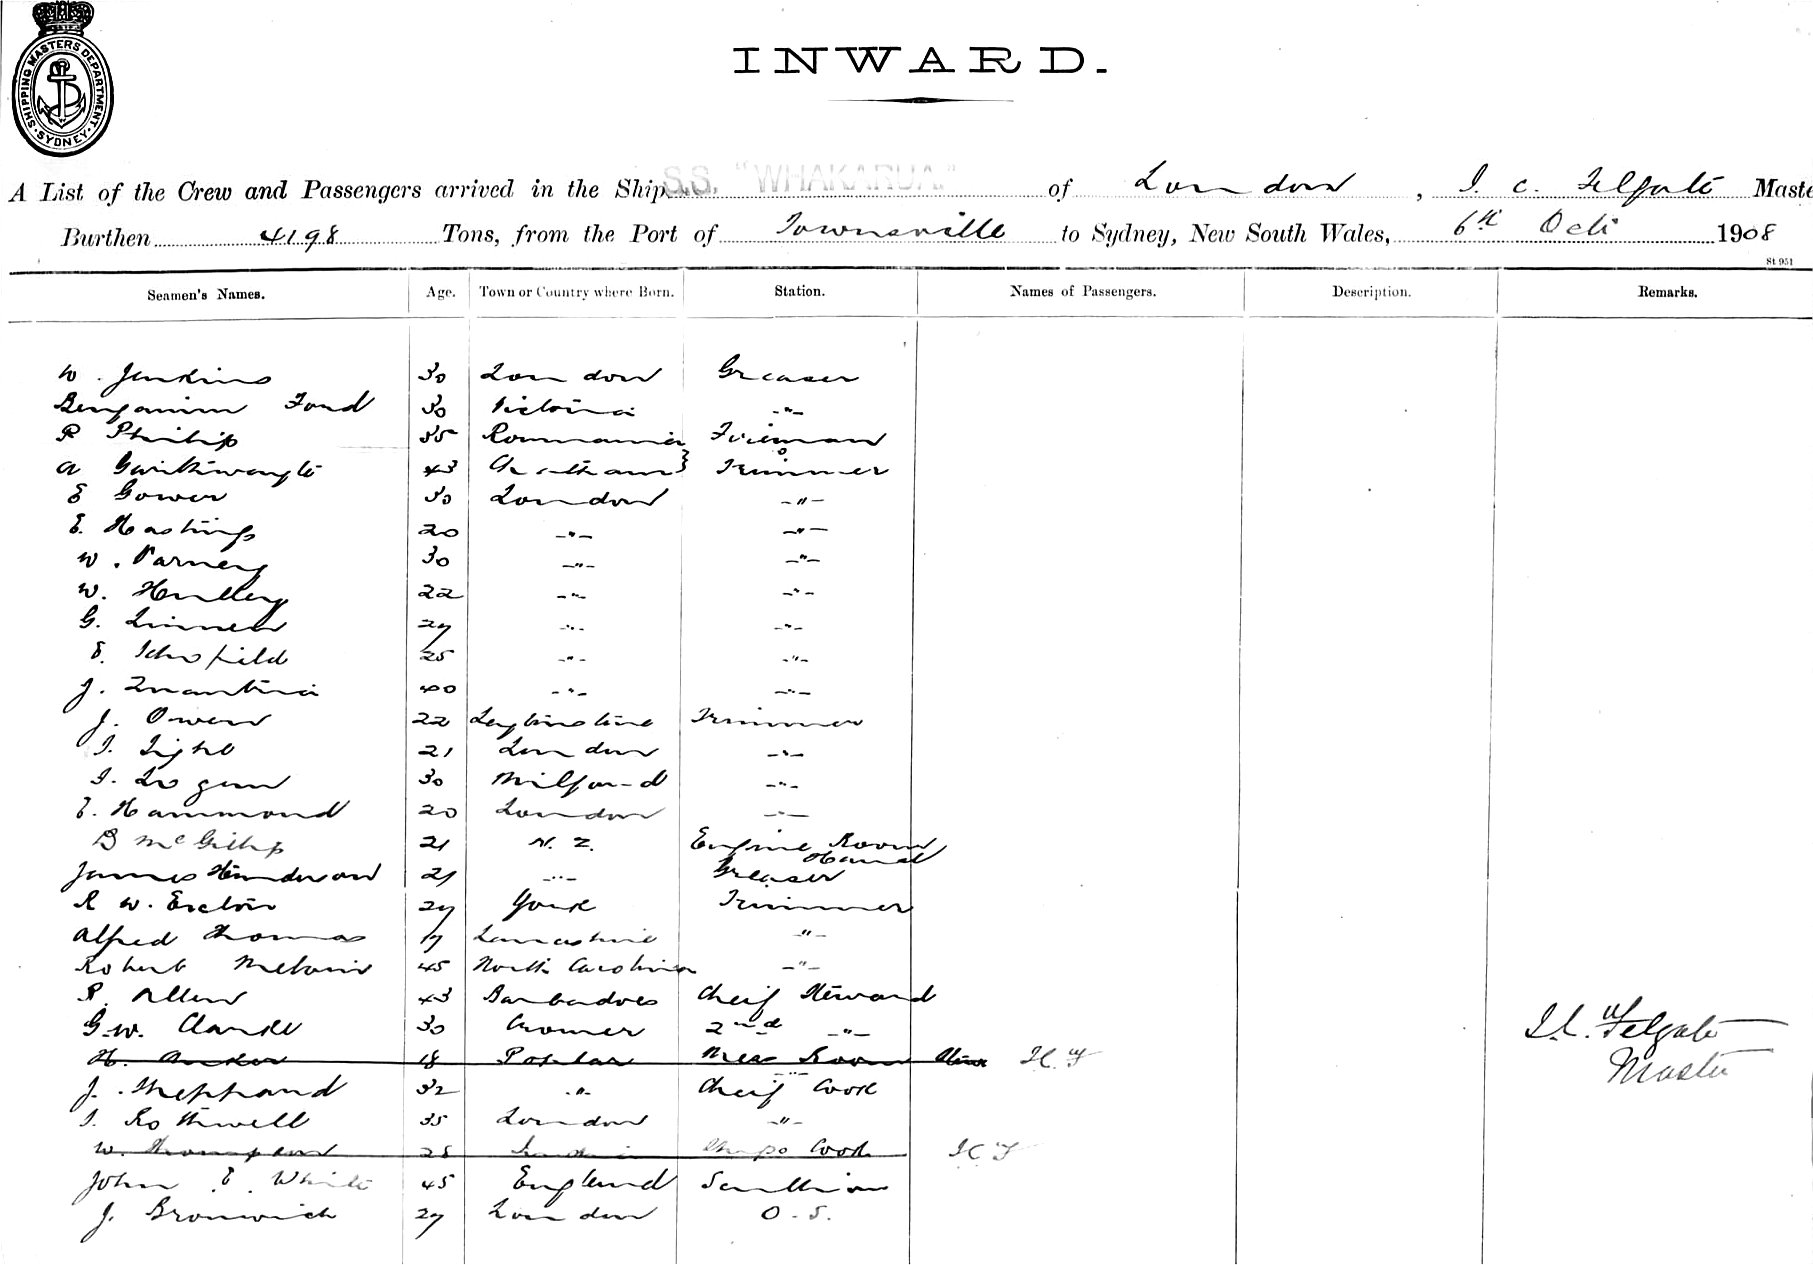 SHIPPING MASTERS DEPARTMENT · SYDNEY ·
INWARD.
A List of the Crew and Passengers arrived in the Ship S.S. "WHAKARUA." of London, I. C. Felgate Maste
Burthen 4198 Tons, from the Port of Townsville to Sydney, New South Wales, 6th Oct 1908
St 951
Seamen's Names. Age. Town or Country where Born. Station. Names of Passengers. Description. Remarks.
W. Jenkins 30 London Greaser
Benjamin Ford 30 Victoria -"-
P Philip 35 Roumania Fireman
A 43 Chatham Trimmer
E Gower 30 London -"-
E. Hastings 20 -"- -"-
W. Varney 30 -"- -"-
W. Henlley 22 -"- -"-
G. Linnew 27 -"- -"-
E. Schofield 25 -"- -"-
J. 40 -"- -"-
J. Owen 22 Trimmer
I. Light 21 London -"-
I. Logan 30 Milford -"-
E. Hammond 20 London -"-
D McGillip 21 N. Z. Engine Room Hand
James Henderson 21 -"- Greaser
R W. Ereloir 27 York Trimmer
Alfred Thomas 17 Lancashire -"-
Robert Melvin 45 North Carolina -"-
R. Allen 43 Barbadoes Cheif Steward
G. W. Clarke 30 Cromer 2nd -"-
I. C. Felgate
H. 18 Poplar Mess Room I C F
Master
J. Sheppard 32 -"- Cheif Cook
I. Rothwell 35 London -"-
W. Thompson 28 Ships Cook I C F
John E. White 45 England Scullion
J. Bromwich 27 London O.S.